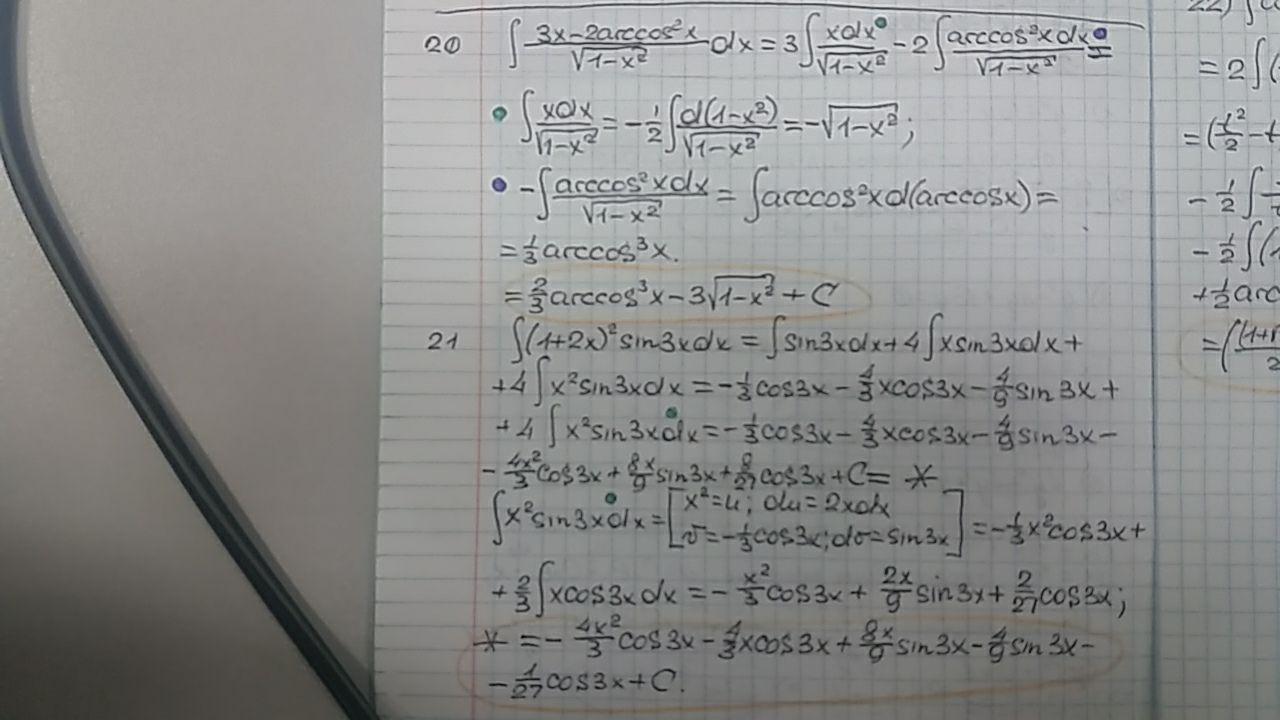 20 ∫ (3x-2arccos²x)/√(1-x²) dx = 3∫ xdx/√(1-x²) - 2∫ arccos²xdx/√(1-x²) =
∫ xdx/√(1-x²) = -1/2 ∫ d(1-x²)/√(1-x²) = -√(1-x²);
-∫ arccos²xdx/√(1-x²) = ∫arccos²xd(arccosx) =
= 1/3 arccos³x.
= 2/3 arccos³x - 3√(1-x²) + C
21 ∫(1+2x)²sin3xdx = ∫sin3xdx + 4∫xsin3xdx +
+4∫x²sin3xdx = -1/3 cos3x - 4/3 xcos3x - 4/9 sin3x +
+4∫x²sin3xdx = -1/3 cos3x - 4/3 xcos3x - 4/9 sin3x -
- 4x²/3 cos3x + 8x/9 sin3x + 8/27 cos3x + C = *
∫x²sin3xdx = [x²=u; du=2xdx
v=-1/3 cos3x; dv=sin3x] = -1/3 x²cos3x +
+ 2/3 ∫xcos3xdx = - x²/3 cos3x + 2x/9 sin3x + 2/27 cos3x;
* = - 4x²/3 cos3x - 4/3 xcos3x + 8x/9 sin3x - 4/9 sin3x -
- 1/27 cos3x + C.
22) ∫
= 2∫(
= (t²/2 - t
- 1/2 ∫
- 1/2 ∫(
+ 1/2 arc
= (